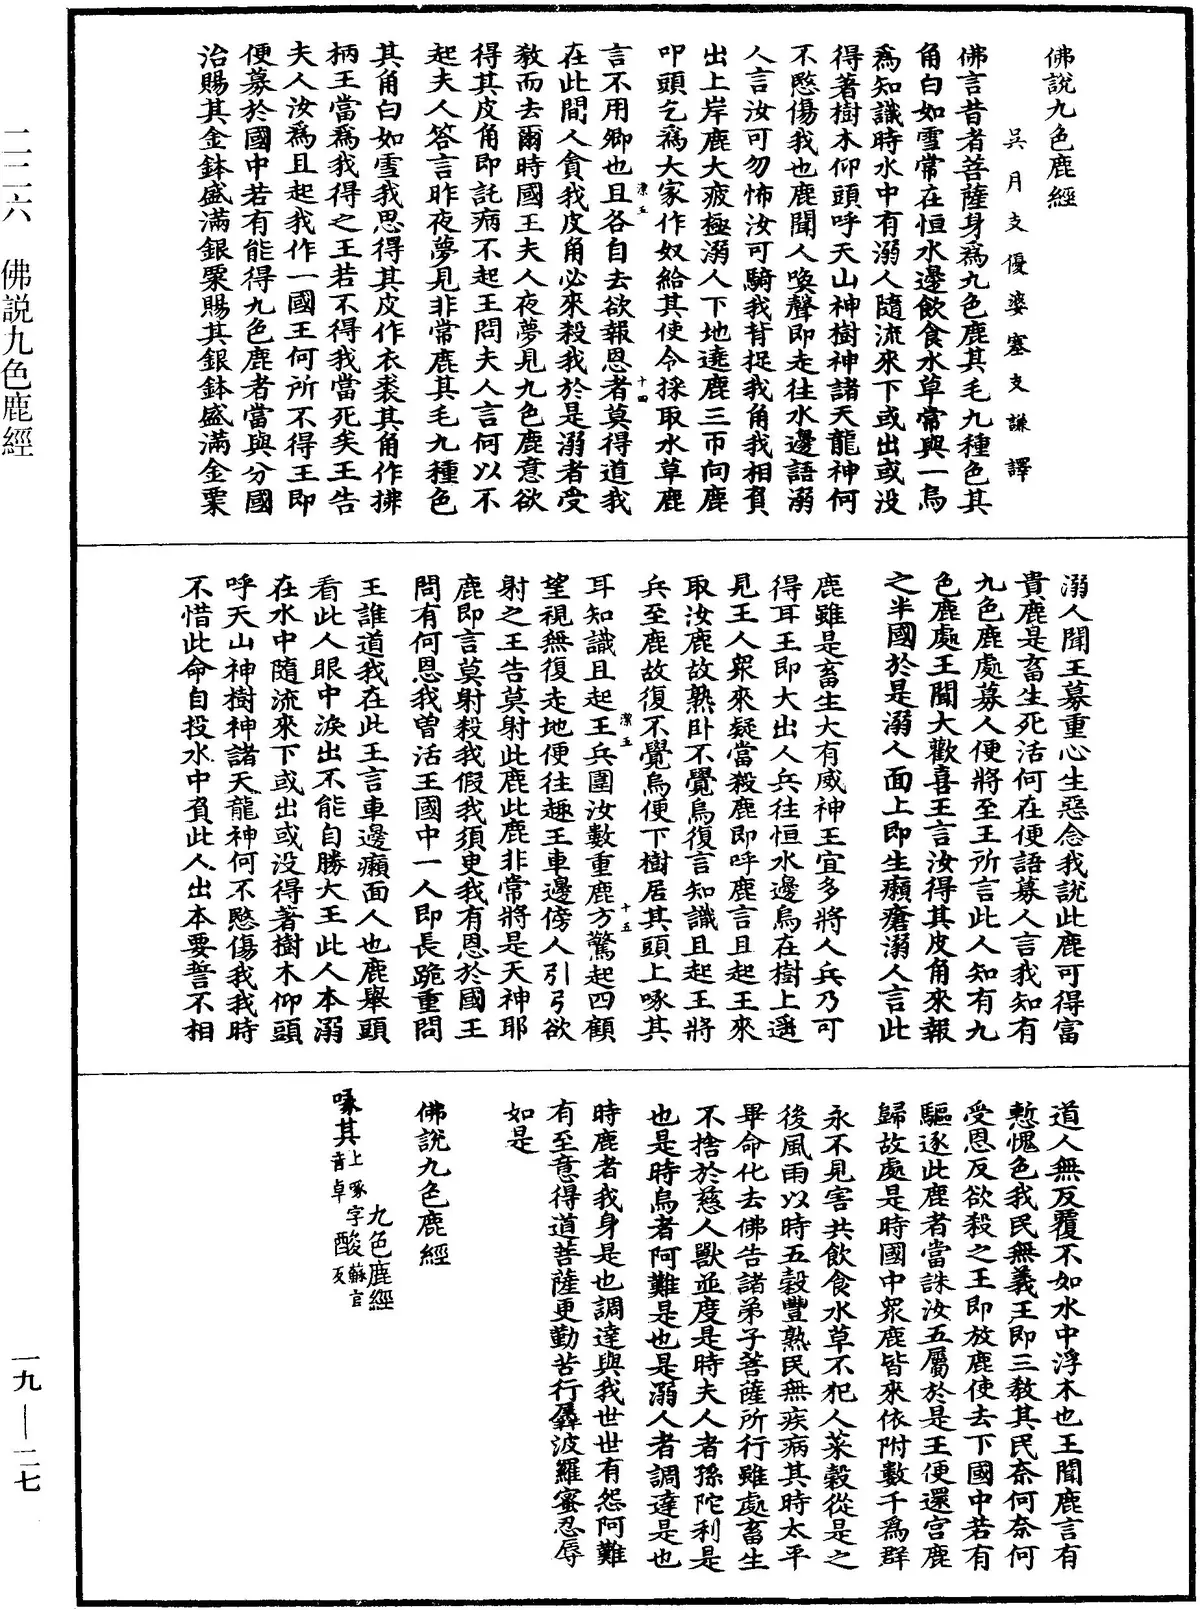 二二二六 佛説九色鹿經
佛説九色鹿經
吳月支優婆塞支謙譯
佛言昔者菩薩身爲九色鹿其毛九種色其
角白如雪常在恒水邊飲食水草常與一烏
爲知識時水中有溺人隨流來下或出或没
得著樹木仰頭呼天山神樹神諸天龍神何
不愍傷我也鹿聞人喚聲即走往水邊語溺
人言汝可勿怖汝可騎我背捉我角我相負
出上岸鹿大疲極溺人下地遶鹿三帀向鹿
叩頭乞爲大家作奴給其使令採取水草鹿
潔五 十四
言不用卿也且各自去欲報恩者莫得道我
在此間人貪我皮角必來殺我於是溺者受
教而去爾時國王夫人夜夢見九色鹿意欲
得其皮角即託病不起王問夫人言何以不
起夫人答言昨夜夢見非常鹿其毛九種色
其角白如雪我思得其皮作衣裘其角作拂
柄王當爲我得之王若不得我當死矣王告
夫人汝爲且起我作一國王何所不得王即
便募於國中若有能得九色鹿者當與分國
治賜其金鉢盛滿銀粟賜其銀鉢盛滿金粟
溺人聞王募重心生惡念我說此鹿可得富
貴鹿是畜生死活何在便語募人言我知有
九色鹿處募人便將至王所言此人知有九
色鹿處王聞大歡喜王言汝得其皮角來報
之半國於是溺人面上即生癩瘡溺人言此
鹿雖是畜生大有威神王宜多將人兵乃可
得耳王即大出人兵往恒水邊烏在樹上遥
見王人衆來疑當殺鹿即呼鹿言且起王來
取汝鹿故熟卧不覺烏復言知識且起王將
兵至鹿故復不覺烏便下樹居其頭上啄其
潔五 十五
耳知識且起王兵圍汝數重鹿方驚起四顧
望視無復走地便往趣王車邊傍人引弓欲
射之王告莫射此鹿此鹿非常將是天神耶
鹿即言莫射殺我假我須臾我有恩於國王
問有何恩我曾活王國中一人即長跪重問
王誰道我在此王言車邊癩面人也鹿舉頭
看此人眼中淚出不能自勝大王此人本溺
在水中隨流來下或出或没得著樹木仰頭
呼天山神樹神諸天龍神何不愍傷我我時
不惜此命自投水中負此人出本要誓不相
道人無反覆不如水中浮木也王聞鹿言有
慙愧色我民無義王即三教其民奈何奈何
受恩反欲殺之王即放鹿使去下國中若有
驅逐此鹿者當誅汝五屬於是王便還宮鹿
歸故處是時國中衆鹿皆來依附數千爲群
永不見害共飲食水草不犯人菜穀從是之
後風雨以時五穀豐熟民無疾病其時太平
畢命化去佛告諸弟子菩薩所行雖處畜生
不捨於慈人獸並度是時夫人者孫陀利是
也是時烏者阿難是也是溺人者調達是也
時鹿者我身是也調達與我世世有怨阿難
有至意得道菩薩更勤苦行羼波羅蜜忍辱
如是
佛説九色鹿經
九色鹿經
啄其上啄字音卓 酸蘇官反
一九—二七